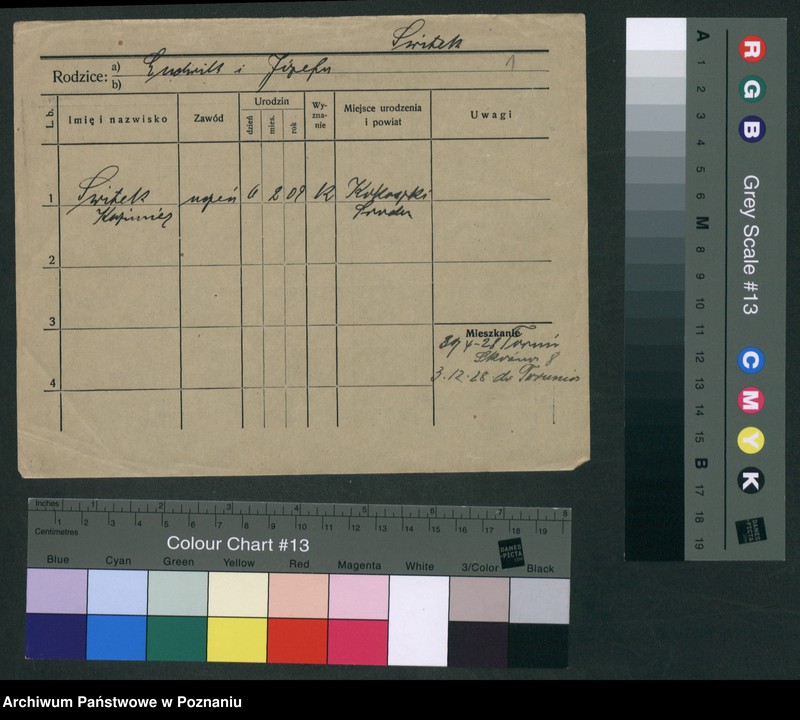 Świtek
1
Rodzice: a) Ludwik i Józefa
b)
L. b. Imię i nazwisko Zawód Urodzin dzień mies. rok Wyzna-nie Miejsce urodzenia i powiat Uwagi
1 Świtek uczeń 6 2 09 K
Kazimierz
2
3
Mieszkanie
4-28 Toruń
8
3.12.28 do Torunia
4
Inches 1 2 3 4 5 6 7 8
1 2 3 4 5 6 7 8 9 10 11 12 13 14 15 16 17 18 19
Centimetres
Colour Chart #13
DANES PICTA .COM
Blue Cyan Green Yellow Red Magenta White 3/Color Black
A 1 2 3 4 5 6 M 8 9 10 11 12 13 14 15 B 17 18 19
R G B
Grey Scale #13
C M Y K
DANES PICTA .COM
Archiwum Państwowe w Poznaniu